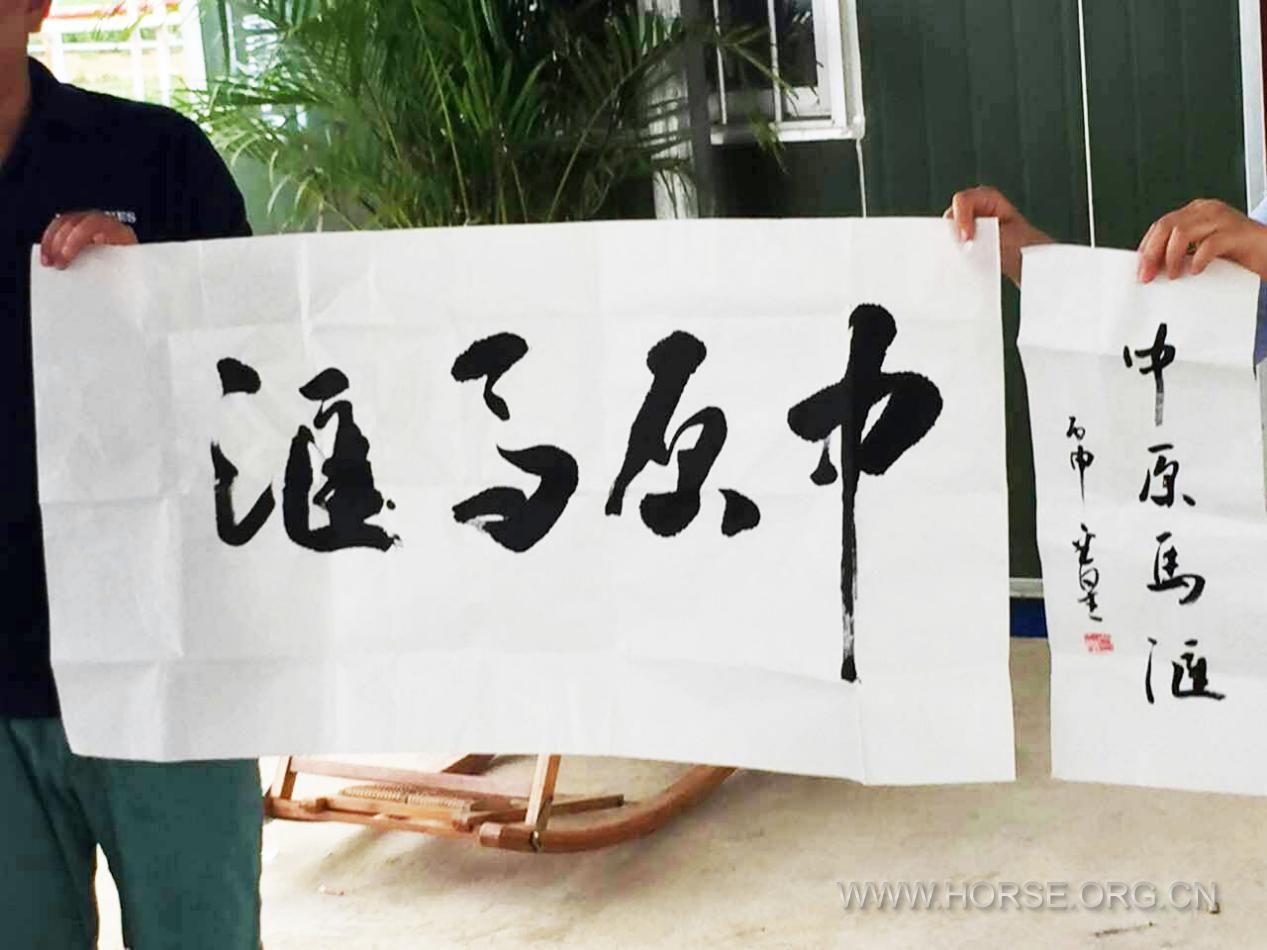 中原馬滙
中原馬滙
丙申
WWW.HORSE.ORG.CN